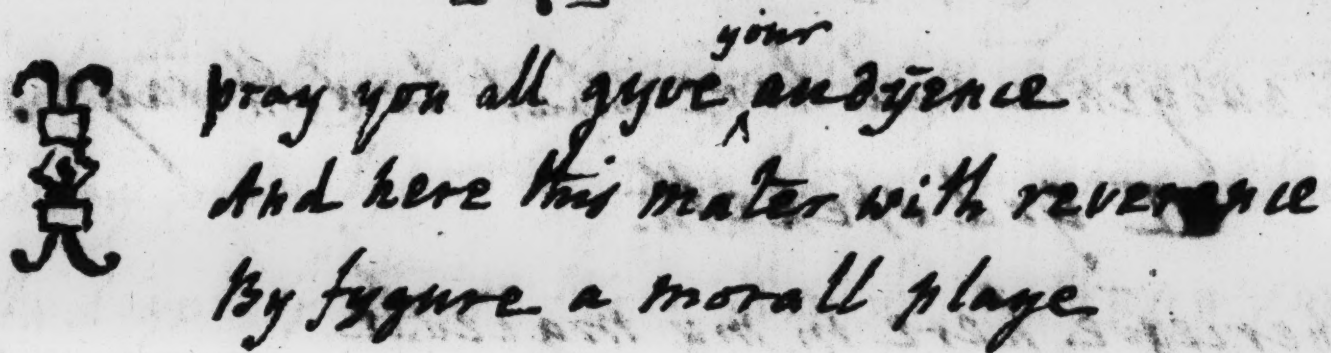 I pray you all gyve your audyence
And here this mater with reverence
By fygure a morall playe